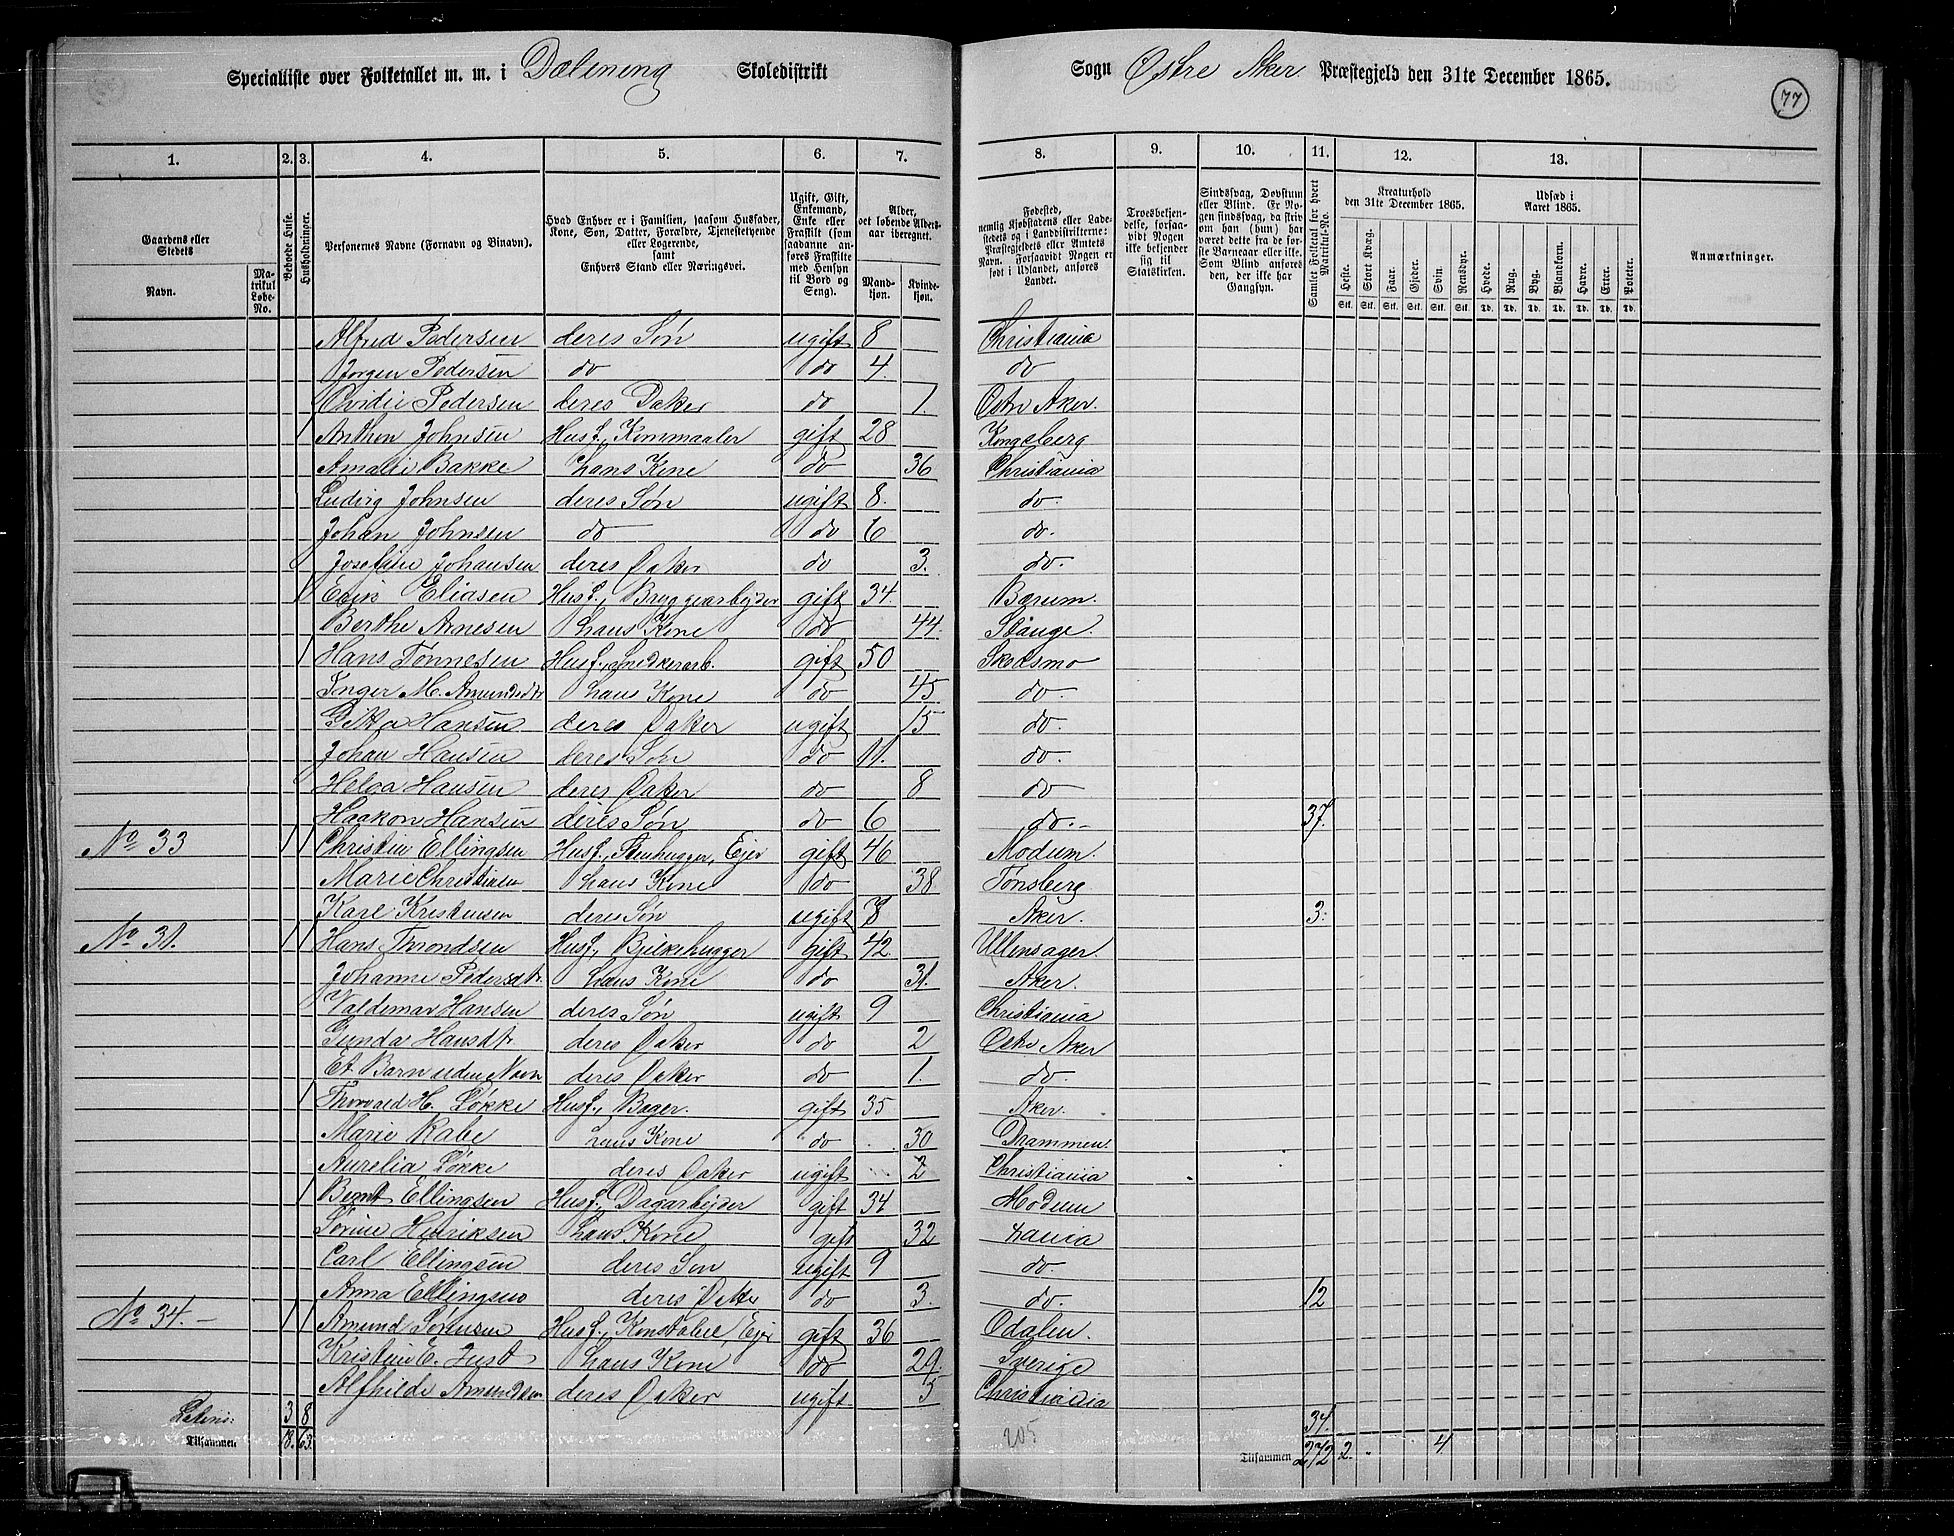 Specialliste over Folketallet m. m. i Dæleneng Skoledistrikt Sogn Østre Aker Præstegjeld den 31te December 1865.
77
1. 2. 3. 4. 5. 6. 7. 8. 9. 10. 11. 12. 13.
Gaardens eller Stedets
Navn.
Matrikul Løbe-No.
Beboede Huse.
Husholdninger.
Personernes Navne (Fornavn og Binavn).
Hvad Enhver er i Familien, saasom Husfader, Kone, Søn, Datter, Forældre, Tjenestetyende eller Logerende, samt Enhvers Stand eller Næringsvei.
Ugift, Gift, Enkemand, Enke eller Fraskilt (som saadanne anføres Fraskilte med Hensyn til Bord og Seng).
Alder, det løbende Alders-aar iberegnet.
Mandkjøn. Kvindekjøn.
Fødested, nemlig Kjøbstadens eller Ladestedets og i Landdistrikterne: Præstegjeldets eller Amtets Navn. Forsaavidt Nogen er født i Udlandet, anføres Landet.
Troesbekjendelse, forsaavidt Nogen ikke bekjender sig til Statskirken.
Sindssvag, Døvstum eller Blind. Er Nogen sindssvag, da skriv om han (hun) har været dette fra de første Barneaar eller ikke. Som Blind anføres den, der ikke har Gangsyn.
Samlet Folketal for hvert Matrikul-No.
Kreaturhold den 31te December 1865.
Heste. Stort Kvæg. Faar. Gjeder. Svin. Rensdyr.
Stk. Stk. Stk. Stk. Stk. Stk.
Udsæd i Aaret 1865.
Hvede. Rug. Byg. Blandkorn. Havre. Erter. Poteter.
Td. Td. Td. Td. Td. Td. Td.
Anmærkninger.
Alfred Pedersen deres Søn ugift 8 Christiania
Jørgen Pedersen do do 4. do
Pedersen deres Datter do 1. Østre Aker.
1 Anthon Johnsen Husf., Kornmaaler gift 28 Kongsberg
Amalie Bakke hans Kone do 36 Christiania
Ludvig Johnsen deres Søn ugift 8. do.
Johan Johnsen do do 6 do.
Josefine Johansen deres Datter do 3. do.
1 Eliasen Husf., Bryggearbejder gift 34. Bærum.
Berthe Arnesen hans Kone do 44. Stange.
1 Hans Tønnesen Husf., Snedkerarb. gift 50 Skedsmo
Inger M. Amundsdtr hans Kone do 45 do.
Hansen deres Datter ugift 15 do.
Johan Hansen deres Søn do 11. do.
Helga Hansen deres Datter do 8 do
Haakon Hansen deres Søn do 6 do.- 37.
No 33 1 1 Christian Ellingsen Husf., Stenhugger, Ejer gift 46 Modum.
Marie Christensen hans Kone do 38 Tønsberg
Karl Kristensen deres Søn ugift 8 Aker. 3.
No 31. 1 1 Hans Throndsen Husf., Bjelkehugger Gift 42. Ullensager.
Johanne Pedersdtr. hans Kone do 31. Aker.
Valdemar Hansen deres Søn ugift 9 Christiania
Gunda Hansdtr. deres Datter do 2 Østre Aker
Et Barn uden Navn deres Datter do 1. do.
1 Thorvald H. Løkke Husf., Bager. gift 35 Aker.
Marie Rabe hans Kone do 30 Drammen.
Aurelia Løkke deres Datter ugift 2 Christiania
1 Bernt Ellingsen Husf. Dagarbejder gift 34 Modum
Sørine Henriksen hans Kone gift 32 Xania
Carl Ellingsen deres Søn ugift 9 do.
Anna Ellingsen deres Datter do 3. do. 12
No 34.- 1 1 Amund Sørensen Husf., Konstabel, Ejer gift 36 Odalen.
Kristine E. Just hans Kone do 29. Sverige
Alfhilde Amundsen deres Datter ugift 5 Christiania
Lateris 3 8 34.
Tilsammen 18. 63. 205 Tilsammen 272 2. 4